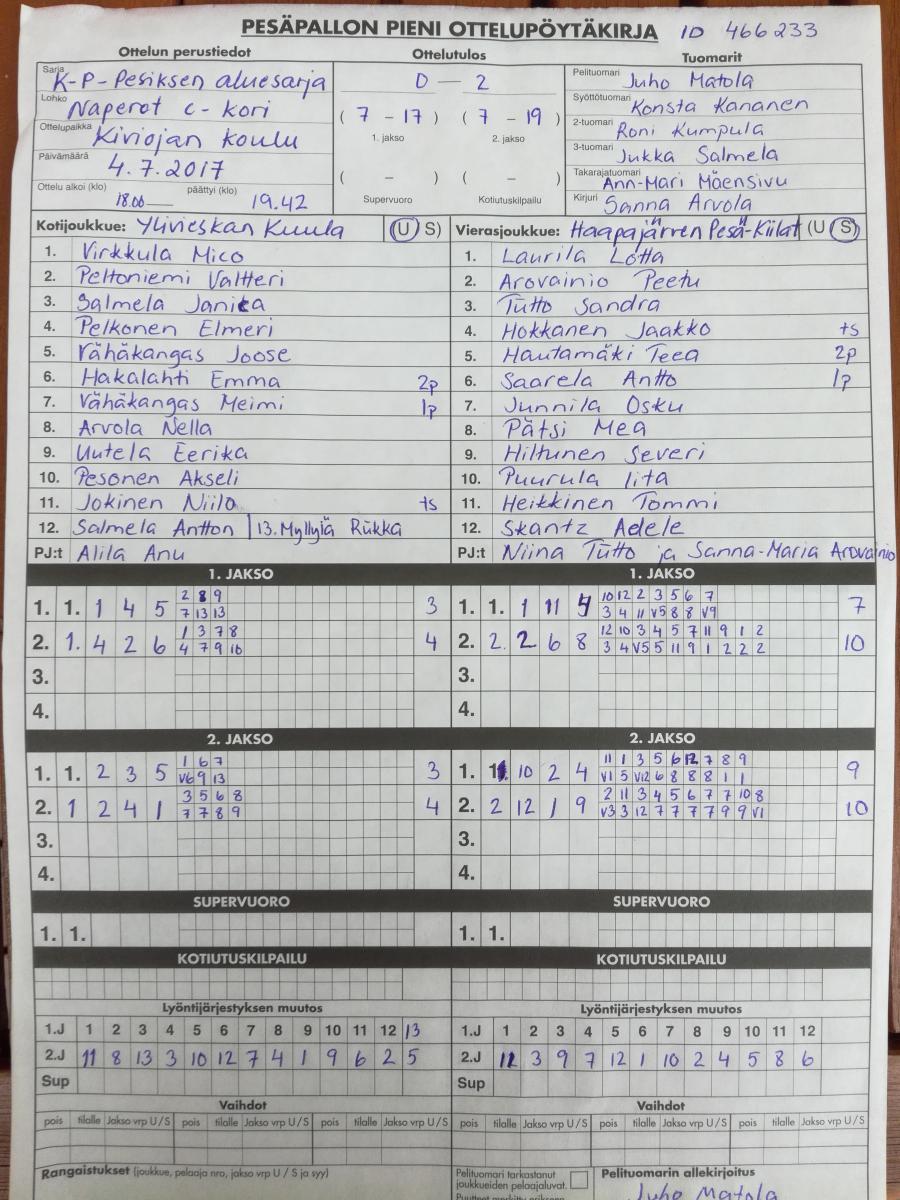 PESÄPALLON PIENI OTTELUPÖYTÄKIRJA ID 466 233
Ottelun perustiedot Ottelutulos Tuomarit
Sarja K-P-Pesiksen aluesarja
Lohko Naperot c-kori
Ottelupaikka Kiviojan koulu
Päivämäärä 4.7.2017
Ottelu alkoi (klo) 18.00 päättyi (klo) 19.42
0 – 2
(7 – 17) (7 – 19)
1. jakso 2. jakso
( – ) ( – )
Supervuoro Kotiutuskilpailu
Pelituomari Juho Matola
Syöttötuomari Konsta Kananen
2-tuomari Roni Kumpula
3-tuomari Jukka Salmela
Takarajatuomari Ann-Mari Mäensivu
Kirjuri Sanna Arvola
Kotijoukkue: Ylivieskan Kuula (U S)
1. Virkkula Mico
2. Peltoniemi Valtteri
3. Salmela Janika
4. Pelkonen Elmeri
5. Vähäkangas Joose
6. Hakalahti Emma 2p
7. Vähäkangas Meimi 1p
8. Arvola Nella
9. Uutela Eerika
10. Pesonen Akseli
11. Jokinen Niilo ts
12. Salmela Antton | 13. Myllylä Riikka
PJ:t Alila Anu
Vierasjoukkue: Haapajärven Pesä-Kiilat (U S)
1. Laurila Lotta
2. Arovainio Peetu
3. Tiitto Sandra
4. Hokkanen Jaakko ts
5. Hautamäki Teea 2p
6. Saarela Antto 1p
7. Junnila Osku
8. Pätsi Mea
9. Hiltunen Severi
10. Puurula Iita
11. Heikkinen Tommi
12. Skantz Adele
PJ:t Niina Tiitto ja Sanna-Maria Arovainio
1. JAKSO
2 8 9
1. 1. 1 4 5 7 13 13 3
1 3 7 8
2. 1. 4 2 6 4 7 9 10 4
3.
4.
1. JAKSO
10 12 2 3 5 6 7
1. 1. 1 11 3 4 11 V5 8 8 V9 7
12 10 3 4 5 7 11 9 1 2
2. 2. 2 6 8 3 4 V5 5 11 9 1 2 2 2 10
3.
4.
2. JAKSO
1 6 7
1. 1. 2 3 5 V6 9 13 3
3 5 6 8
2. 1 2 4 1 7 7 8 9 4
3.
4.
2. JAKSO
11 1 3 5 6 12 7 8 9
1. 10 2 4 V1 5 V12 6 8 8 8 1 1 9
2 11 3 4 5 6 7 7 10 8
2. 2 12 1 9 V3 3 12 7 7 7 7 9 9 V1 10
3.
4.
SUPERVUORO
1. 1.
SUPERVUORO
1. 1.
KOTIUTUSKILPAILU
KOTIUTUSKILPAILU
Lyöntijärjestyksen muutos
1.J 1 2 3 4 5 6 7 8 9 10 11 12 13
2.J 11 8 13 3 10 12 7 4 1 9 6 2 5
Sup
Lyöntijärjestyksen muutos
1.J 1 2 3 4 5 6 7 8 9 10 11 12
2.J 11 3 9 7 12 1 10 2 4 5 8 6
Sup
Vaihdot
pois tilalle Jakso vrp U / S pois tilalle Jakso vrp U / S pois tilalle Jakso vrp U / S
Vaihdot
pois tilalle Jakso vrp U / S pois tilalle Jakso vrp U / S pois tilalle Jakso vrp U / S
Rangaistukset (joukkue, pelaaja nro, jakso vrp U / S ja syy)
Pelituomari tarkastanut
joukkueiden pelaajaluvat.
Pelituomarin allekirjoitus
Juho Matola